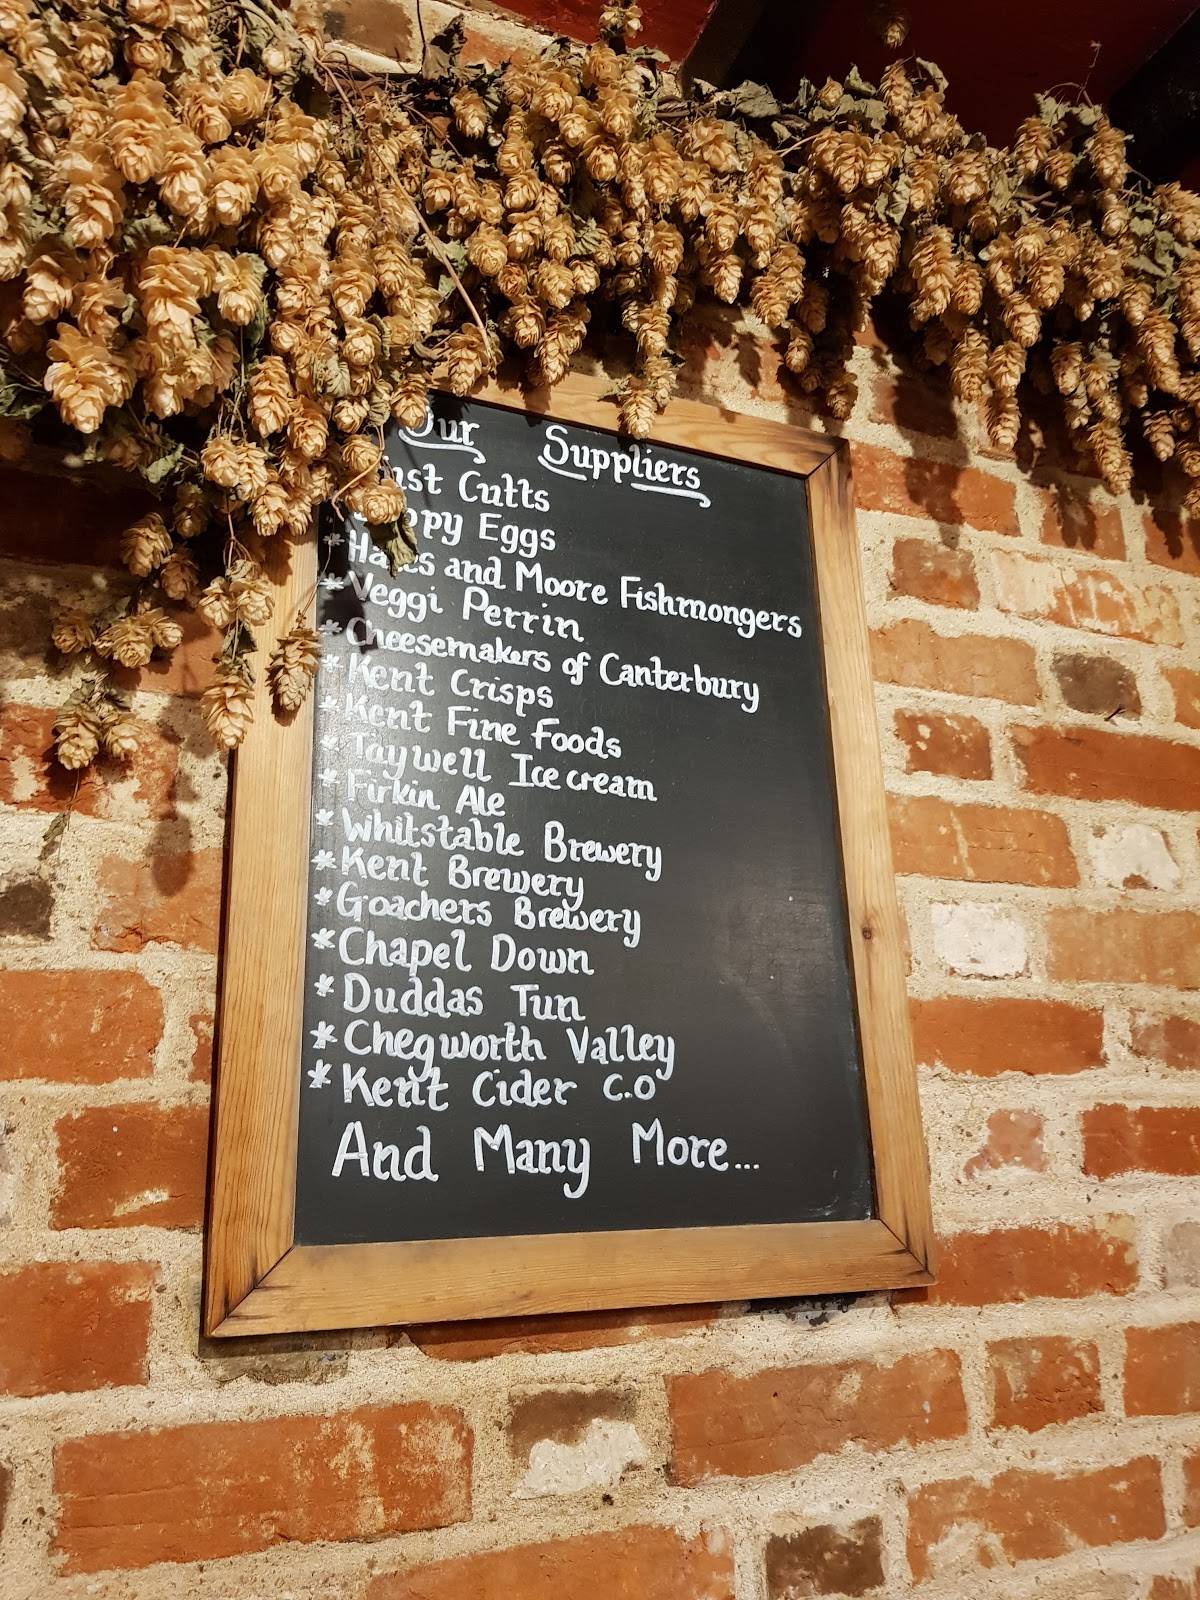 Our Suppliers
Cutts
Eggs
* and Moore Fishmongers
* Veggi Perrin
* Cheesemakers of Canterbury
* Kent Crisps
* Kent Fine Foods
* Taywell Ice cream
* Firkin Ale
* Whitstable Brewery
* Kent Brewery
* Goachers Brewery
* Chapel Down
* Duddas Tun
* Chegworth Valley
* Kent Cider C.O
And Many More...